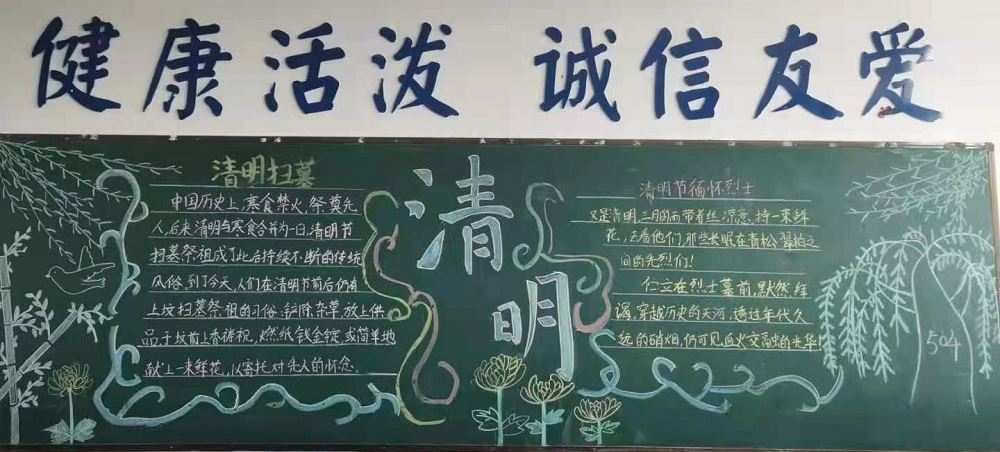 健康活泼 诚信友爱
清明扫墓
中国历史上,寒食禁火,祭奠先
人,后来清明与寒食合并为一日,清明节
扫墓祭祖成了此后持续不断的传统
风俗,到了今天,人们在清明节前后仍有
上坟扫墓祭祖的习俗:铲除杂草,放上供
品于坟前上香祷祝,燃纸钱金锭,或简单地
献上一束鲜花,以寄托对先人的怀念
清明
清明节缅怀烈士
又是清明,二月的雨带着丝凉意,持一束鲜
花,去看他们,那些长眠在青松翠柏之
间的先烈们!
伫立在烈士墓前,默然拜
谒,穿越历史的天河,透过年代久
远的硝烟,仍可见血火交融的
504